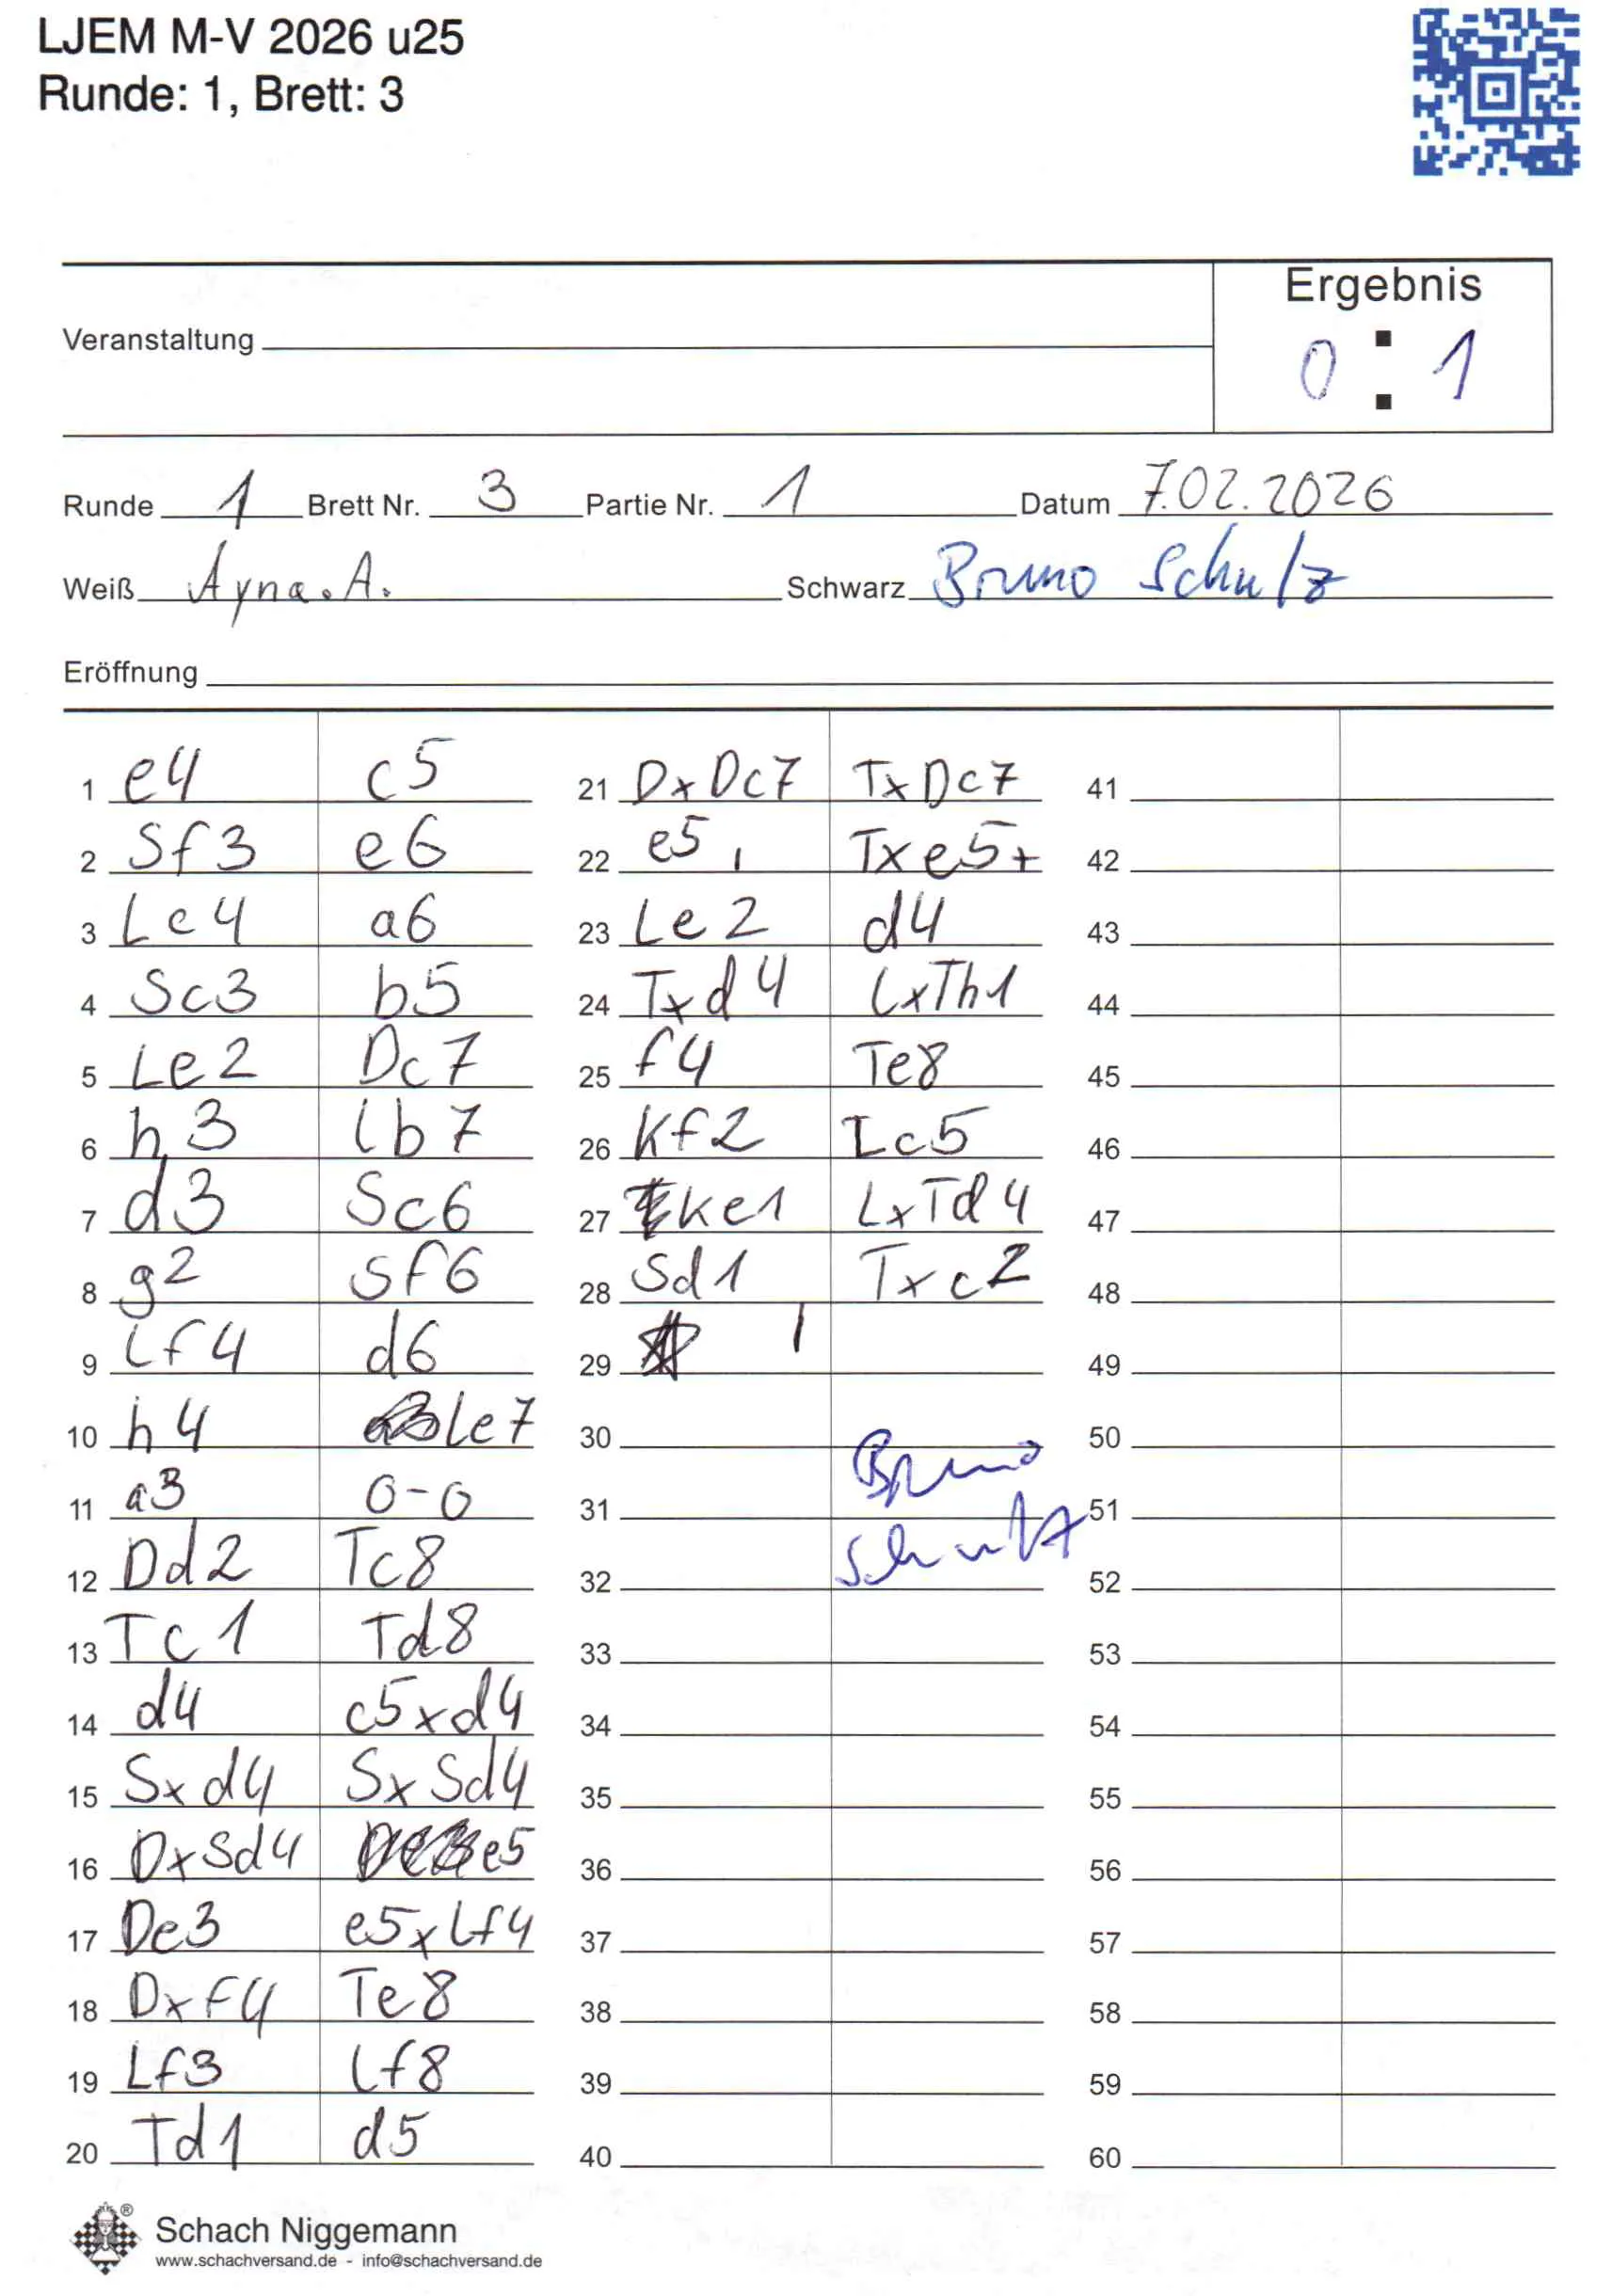 LJEM M-V 2026 u25
Runde: 1, Brett: 3
Ergebnis
Veranstaltung
0 : 1
Runde 1 Brett Nr. 3 Partie Nr. 1 Datum 7.02.2026
Weiß Ayna. A. Schwarz Bruno Schulz
Eröffnung
1 e4 c5
2 Sf3 e6
3 Lc4 a6
4 Sc3 b5
5 Le2 Dc7
6 h3 Lb7
7 d3 Sc6
8 g2 Sf6
9 Lf4 d6
10 h4 Le7
11 a3 0-0
12 Dd2 Tc8
13 Tc1 Td8
14 d4 c5xd4
15 Sxd4 SxSd4
16 DxSd4 e5
17 De3 e5xLf4
18 Dxf4 Te8
19 Lf3 Lf8
20 Td1 d5
21 DxDc7 TxDc7
22 e5 Txe5+
23 Le2 d4
24 Txd4 LxTh1
25 f4 Te8
26 Kf2 Lc5
27 Ke1 LxTd4
28 Sd1 Txc2
29
30
31
32
33
34
35
36
37
38
39
40
Bruno
Schulz
41
42
43
44
45
46
47
48
49
50
51
52
53
54
55
56
57
58
59
60
Schach Niggemann
www.schachversand.de - info@schachversand.de